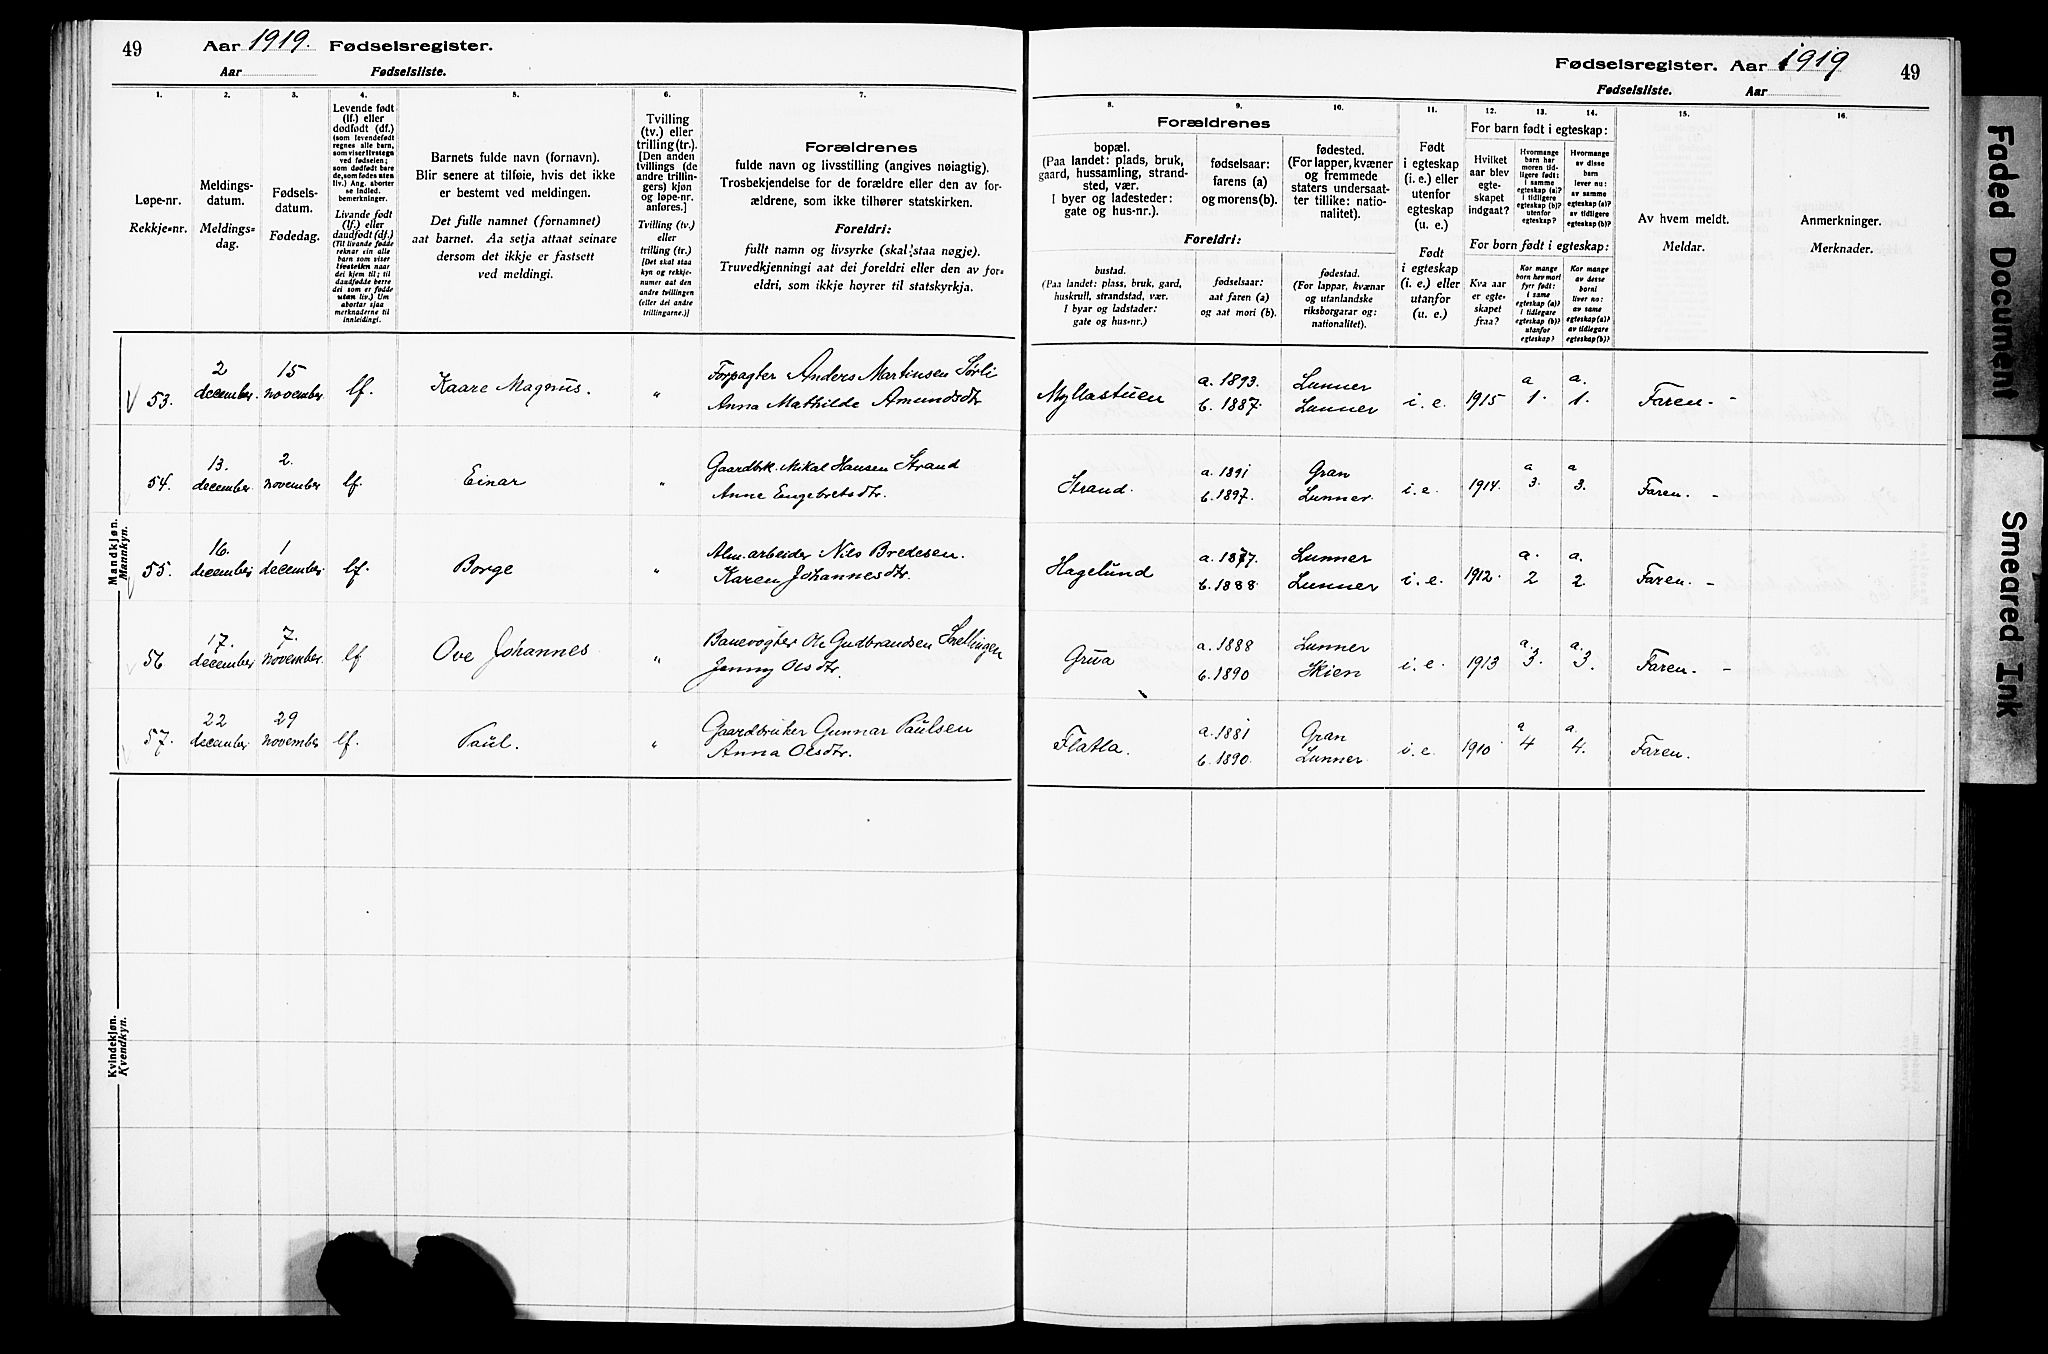 49
Aar 1919. Fødselsregister.
Aar Fødselsliste.
Fødselsregister. Aar 1919
Fødselsliste. Aar
49
1. 2. 3. 4. 5. 6. 7.
Løpe-nr.
Rekkje-nr.
Meldings-
datum.
Meldings-
dag.
Fødsels-
datum.
Fødedag.
Levende født
(lf.) eller
dødfødt (df.)
(som levendefødt
regnes alle barn,
som viser livstegn
ved fødselen;
som dødfødt bare
de, som fødes uten
liv.) Ang. aborter
se indled.
bemerkninger.
Livande født
(lf.) eller
daudfødt (df.)
(Til livande fødde
reknar ein alle
barn som viser
livsteikn naar
dei kjem til; til
daudfødde berre
dei som er fødde
utan liv.) Um
abortar sjaa
merknaderne til
innleidingi.
Barnets fulde navn (fornavn).
Blir senere at tilføie, hvis det ikke
er bestemt ved meldingen.
Det fulle namnet (fornamnet)
aat barnet. Aa setja attaat seinare
dersom det ikkje er fastsett
ved meldingi.
Tvilling
(tv.) eller
trilling (tr.).
[Den anden
tvillings (de
andre trillin-
gers) kjøn
og løpe-nr.
anføres.]
Tvilling (tv.)
eller
trilling (tr.)
[Det skal staa
kyn og rekkje-
numer aat den
andre tvillingen
(eller dei andre
trillingarne.)]
Forældrenes
fulde navn og livsstilling (angives nøiagtig).
Trosbekjendelse for de forældre eller den av for-
ældrene, som ikke tilhører statskirken.
Foreldri:
fullt namn og livsyrke (skal staa nøgje).
Truvedkjenningi aat dei foreldri eller den av for-
eldri, som ikkje høyrer til statskyrkja.
8. 9. 10. 11. 12. 13. 14. 15. 16.
Forældrenes
bopæl.
(Paa landet: plads, bruk,
gaard, hussamling, strand-
sted, vær.
I byer og ladesteder:
gate og hus-nr.).
fødselsaar:
farens (a)
og morens (b).
fødested.
(For lapper, kvæner
og fremmede
staters undersaat-
ter tillike: natio-
nalitet).
Foreldri:
bustad.
(Paa landet: plass, bruk, gard,
huskrull, strandstad, vær.
I byar og ladstader:
gate og hus-nr.)
fødselsaar:
aat faren (a)
og aat mori (b).
fødestad.
(For lappar, kvænar
og utanlandske
riksborgarar og:
nationalitet).
Født
i egteskap
(i. e.) eller
utenfor
egteskap
(u. e.)
Født
i egteskap
(i. e.) eller
utanfor
(u. e.)
For barn født i egteskap:
Hvilket
aar blev
egte-
skapet
indgaat?
Hvormange
barn har
moren tid-
ligere født:
i samme
egteskap (a)?
i tidligere
egteskap (b)?
utenfor
egteskap?
Hvormange
av disse
barn
lever nu:
av samme
egteskap (a)?
av tidligere
egteskap (b)?
For born født i egteskap:
Kva aar
er egte-
skapet
fraa?
Kor mange
born hev mori
fyrr født:
i same
egteskap (a)?
i tidlegare
egteskap (b)?
utanfor
egteskap?
Kor mange
av desse
borni
liver no:
av same
egteskap (a)?
av tidlegare
egteskap (b)?
Av hvem meldt.
Meldar.
Anmerkninger.
Merknader.
Mandkjøn.
Mannkyn.
53. 2 december 15 november lf. Kaare Magnus. " Forpagter Anders Martinsen Sørli
Anna Mathilde Amundsdtr Myllastuen a. 1893. b. 1887. Lunner Lunner i. e. 1915 a 1. a. 1. Faren. -
54. 13. december 2. november lf. Einar " Gaardbrk. Mikal Hansen Strand
Anne Engebretsdtr. Strand. a. 1891 b. 1897. Gran Lunner. i. e. 1914. a 3. a 3. Faren. -
55. 16. december 1 december lf. Borge " Alm. arbeider Nils Bredesen.
Karen Johannesdtr. Hagelund a. 1877. b. 1888. Lunner Lunner i. e. 1912. a. 2 a. 2. Faren. -
56 17. december 7. november. lf Ove Johannes " Banevogter Ole Gudbrandsen
Jenny Olsdtr. Grua a. 1888 b. 1890 Lunner Skien i. e. 1913 a. 3. a. 3. Faren. -
57. 22 december 29 november lf. Paul. " Gaardbruker Gunnar Paulsen
Anna Olsdtr. Flatla. a. 1881 b. 1890. Gran Lunner i. e. 1910 a 4 a. 4. Faren.
Kvindekjøn.
Kvendkyn.
Faded Document
Smeared Ink